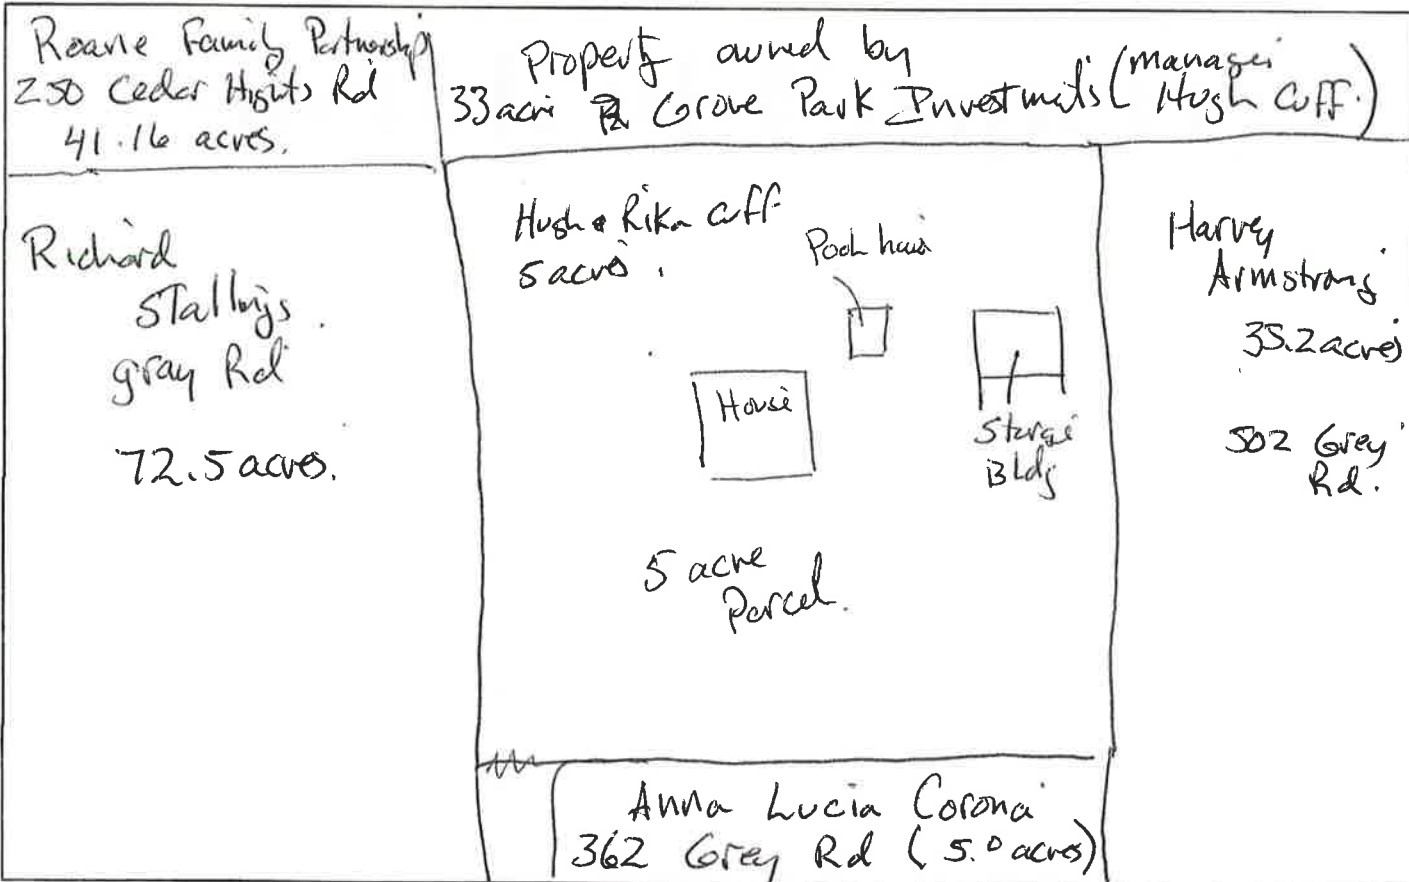 Roane Family Partnership
250 Cedar Hights Rd
41.16 acres.
Property owned by
33 acre Grove Park Investments (manager
Hugh Cuff.)
Richard
Stallings.
gray Rd
72.5 acres.
Hugh & Rika Cuff
5 acres.
Pool house
House
Storage
Bldg
5 acre
Parcel.
Harvey
Armstrong
35.2 acres
502 Grey
Rd.
Anna Lucia Corona
362 Grey Rd (5.0 acres)